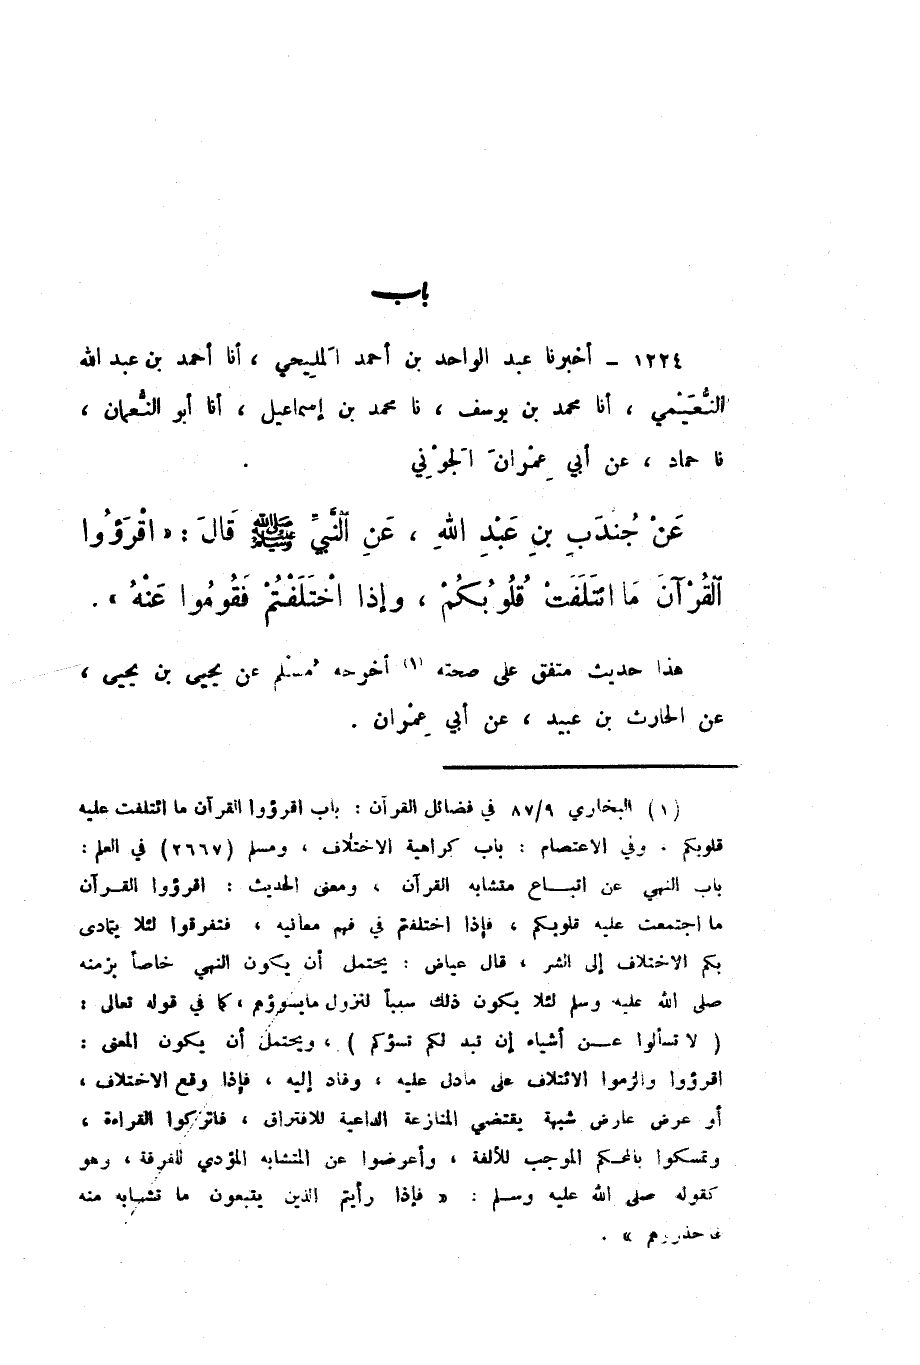 باب
١٢٢٤ – أخبرنا عبد الواحد بن أحمد المليحي ، أنا أحمد بن عبد الله
النُّعَيْمي ، أنا محمد بن يوسف ، نا محمد بن إسماعيل ، أنا أبو النُّعمان ،
نا حماد ، عن أبي عِمْرانَ الجَوْني
عَنْ جُندَبِ بنِ عَبْدِ اللهِ ، عَنِ ٱلنَّبيِّ ﷺ قَالَ : « اقْرَؤُوا
ٱلقُرْآنَ مَا ائتَلَفَتْ قُلُوبُكُمْ ، وإذا اخْتَلَفْتُمْ فَقُومُوا عَنْهُ » .
هذا حديث متفق على صحته (١) أخرجه مُسْلم عن يحيى بن يحيى ،
عن الحارث بن عبيد ، عن أبي عِمْران .
(١) البخاري ٨٧/٩ في فضائل القرآن : باب اقرؤوا القرآن ما ائتلفت عليه
قلوبكم . وفي الاعتصام : باب كراهية الاختلاف ، ومسلم (٢٦٦٧) في العلم :
باب النهي عن اتبـــاع متشابه القرآن ، ومعنى الحديث : اقرؤوا القــرآن
ما اجتمعت عليه قلوبكم ، فإذا اختلفتم في فهم معانيه ، فتفرقوا لئلا يتمادى
بكم الاختلاف إلى الشر ، قال عياض : يحتمل أن يكون النهي خاصاً بزمنه
صلى الله عليه وسلم لئلا يكون ذلك سبباً لنزول مايسوؤهم ، كما في قوله تعالى :
( لا تسألوا عـــن أشياء إن تبد لكم تسؤكم ) ، ويحتمل أن يكون المعنى :
اقرؤوا والزموا الائتلاف على مادل عليه ، وقاد إليه ، فإذا وقع الاختلاف ،
أو عرض عارض شبهة يقتضي المنازعة الداعية للافتراق ، فاتركوا القراءة ،
وتمسكوا بالمحكم الموجب للألفة ، وأعرضوا عن المتشابه المؤدي للفرقة ، وهو
كقوله صلى الله عليه وسلم : « فإذا رأيتم الذين يتبعون ما تشابه منه
فاحذروهم » .